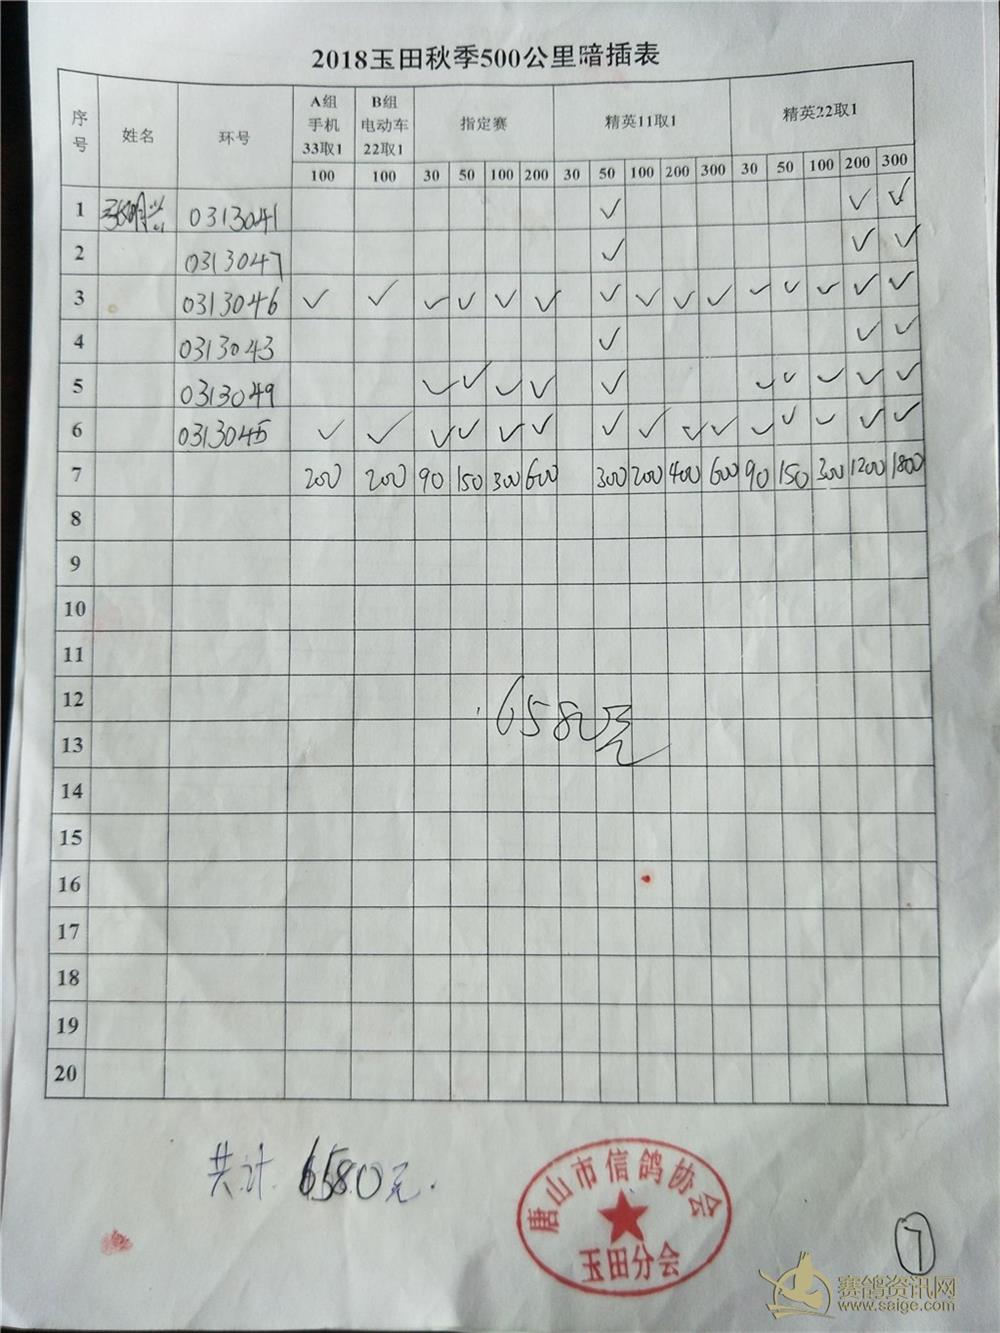 2018玉田秋季500公里暗插表
序号 姓名 环号 A组手机33取1 B组电动车22取1 指定赛 精英11取1 精英22取1
100 100 30 50 100 200 30 50 100 200 300 30 50 100 200 300
1 张明兴 0313041 ✓ ✓ ✓
2 0313047 ✓ ✓ ✓
3 0313046 ✓ ✓ ✓ ✓ ✓ ✓ ✓ ✓ ✓ ✓ ✓ ✓ ✓ ✓ ✓
4 0313043 ✓ ✓ ✓
5 0313049 ✓ ✓ ✓ ✓ ✓ ✓ ✓ ✓ ✓ ✓
6 0313045 ✓ ✓ ✓ ✓ ✓ ✓ ✓ ✓ ✓ ✓ ✓ ✓ ✓ ✓ ✓
7 200 200 90 150 300 600 300 200 400 600 90 150 300 1200 1800
8
9
10
11
12
6580元
13
14
15
16
17
18
19
20
共计 6580元.
唐山市信鸽协会
玉田分会
7
赛鸽资讯网
www.saige.com